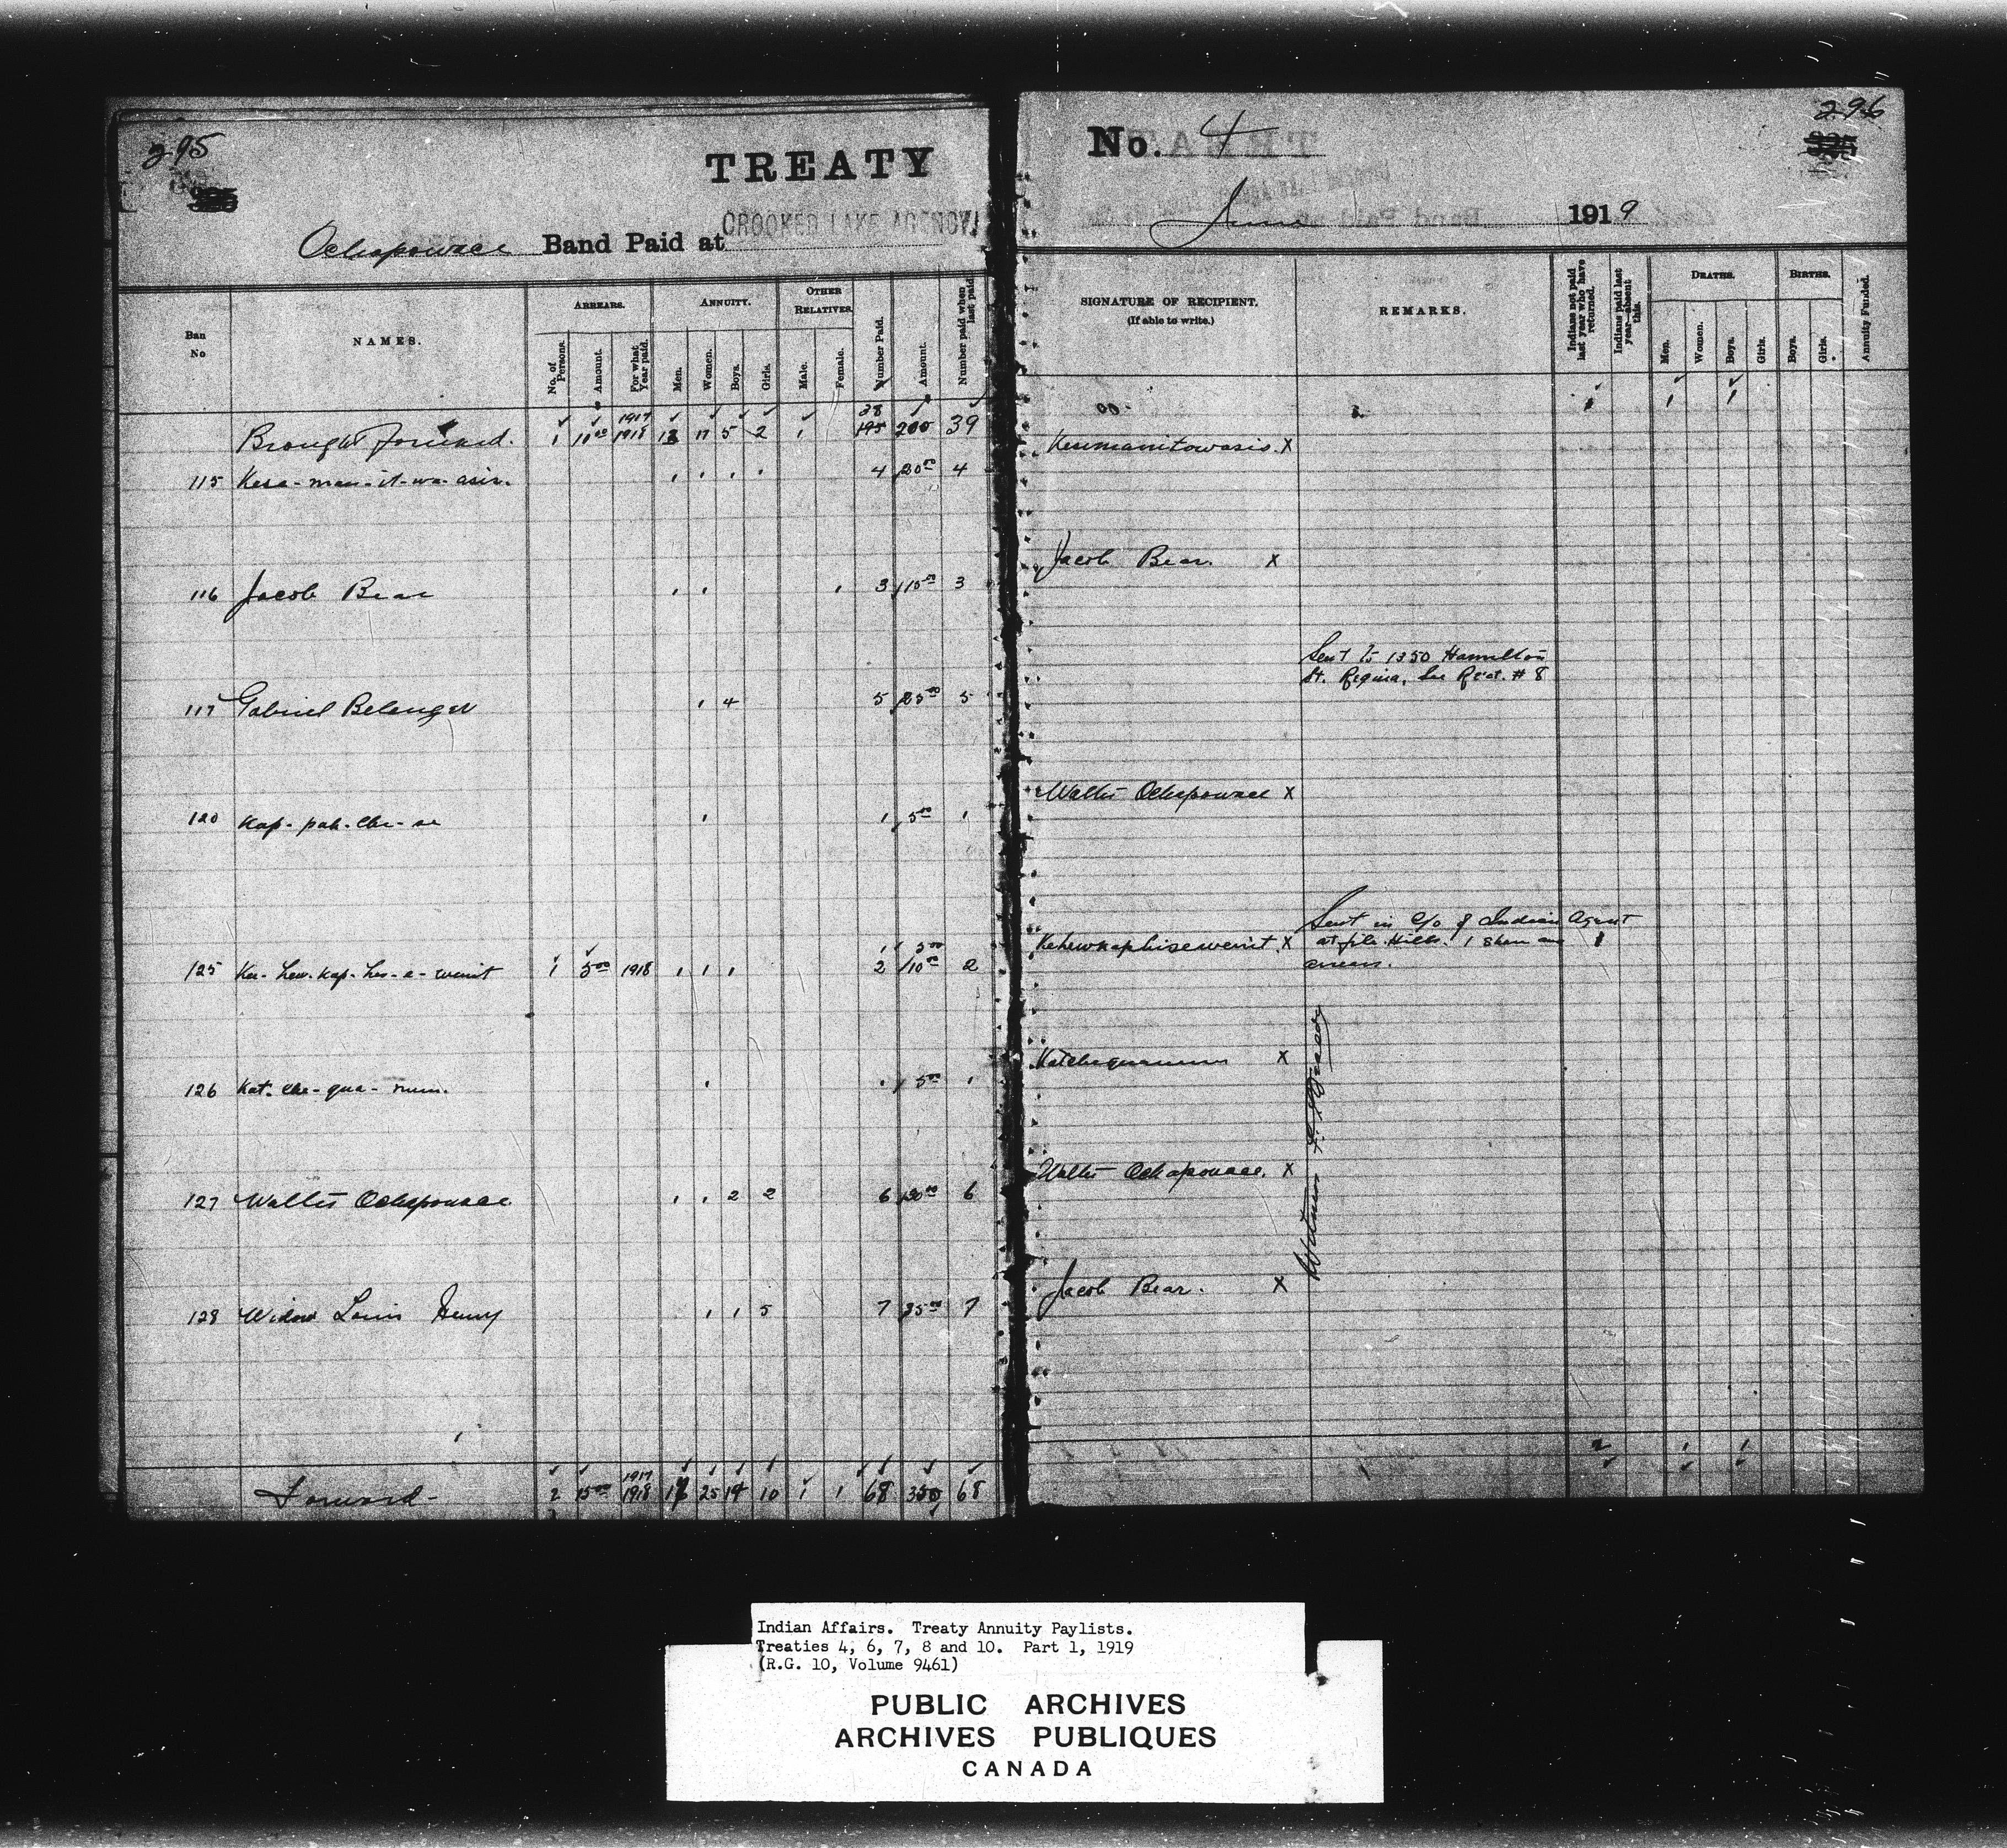 295
TREATY
Ochapowace Band Paid at CROOKED LAKE AGENCY
Ban No
NAMES.
ARREARS.
No. of Persons.
Amount.
For what Year paid.
ANNUITY.
Men.
Women.
Boys.
Girls.
OTHER RELATIVES.
Male.
Female.
Number Paid.
Amount.
Number paid when last paid
1917 38
Brought Forward. 1 10 00 1918 17 5 2 1 200 39
115 Kese-man-it-wa-asis. 1 1 1 1 4 20 00 4
116 Jacob Bear 1 1 1 3 15 00 3
117 Gabriel Belanger 1 4 5 25 00 5
120 Kap-pah-che-se 1 1 5 00 1
1 5 00
125 Ke-hew-kap-hes-e-weinit 1 5 00 1918 1 1 1 2 10 00 2
126 Kat-che-qua-num. 1 1 5 00 1
127 Walter Ochapowace 1 1 2 2 6 30 00 6
128 Widow Louis Henry 1 1 5 7 35 00 7
1917
Forward- 2 15 00 1918 25 14 10 1 1 68 350 68
296
No. 4
June 1919
SIGNATURE OF RECIPIENT.
(If able to write.)
REMARKS.
Indians not paid last year who have returned.
Indians paid last year—absent this.
DEATHS.
Men.
Women.
Boys.
Girls.
BIRTHS.
Boys.
Girls.
Annuity Funded.
1 1 1
Kesemanitowasis. X
Jacob Bear. X
Sent to 1350 Hamilton
St. Regina, See Rect. # 8
Walter Ochapowace X
Sent in c/o of Indian Agent
Kehewkaphiseweinit X at File Hills. 1 share as 1
arrears.
Katchequanum X
Walter Ochapowace. X
Witness
Jacob Bear. X
2 1 1
Indian Affairs. Treaty Annuity Paylists.
Treaties 4, 6, 7, 8 and 10. Part 1, 1919
(R.G. 10, Volume 9461)
PUBLIC ARCHIVES
ARCHIVES PUBLIQUES
CANADA